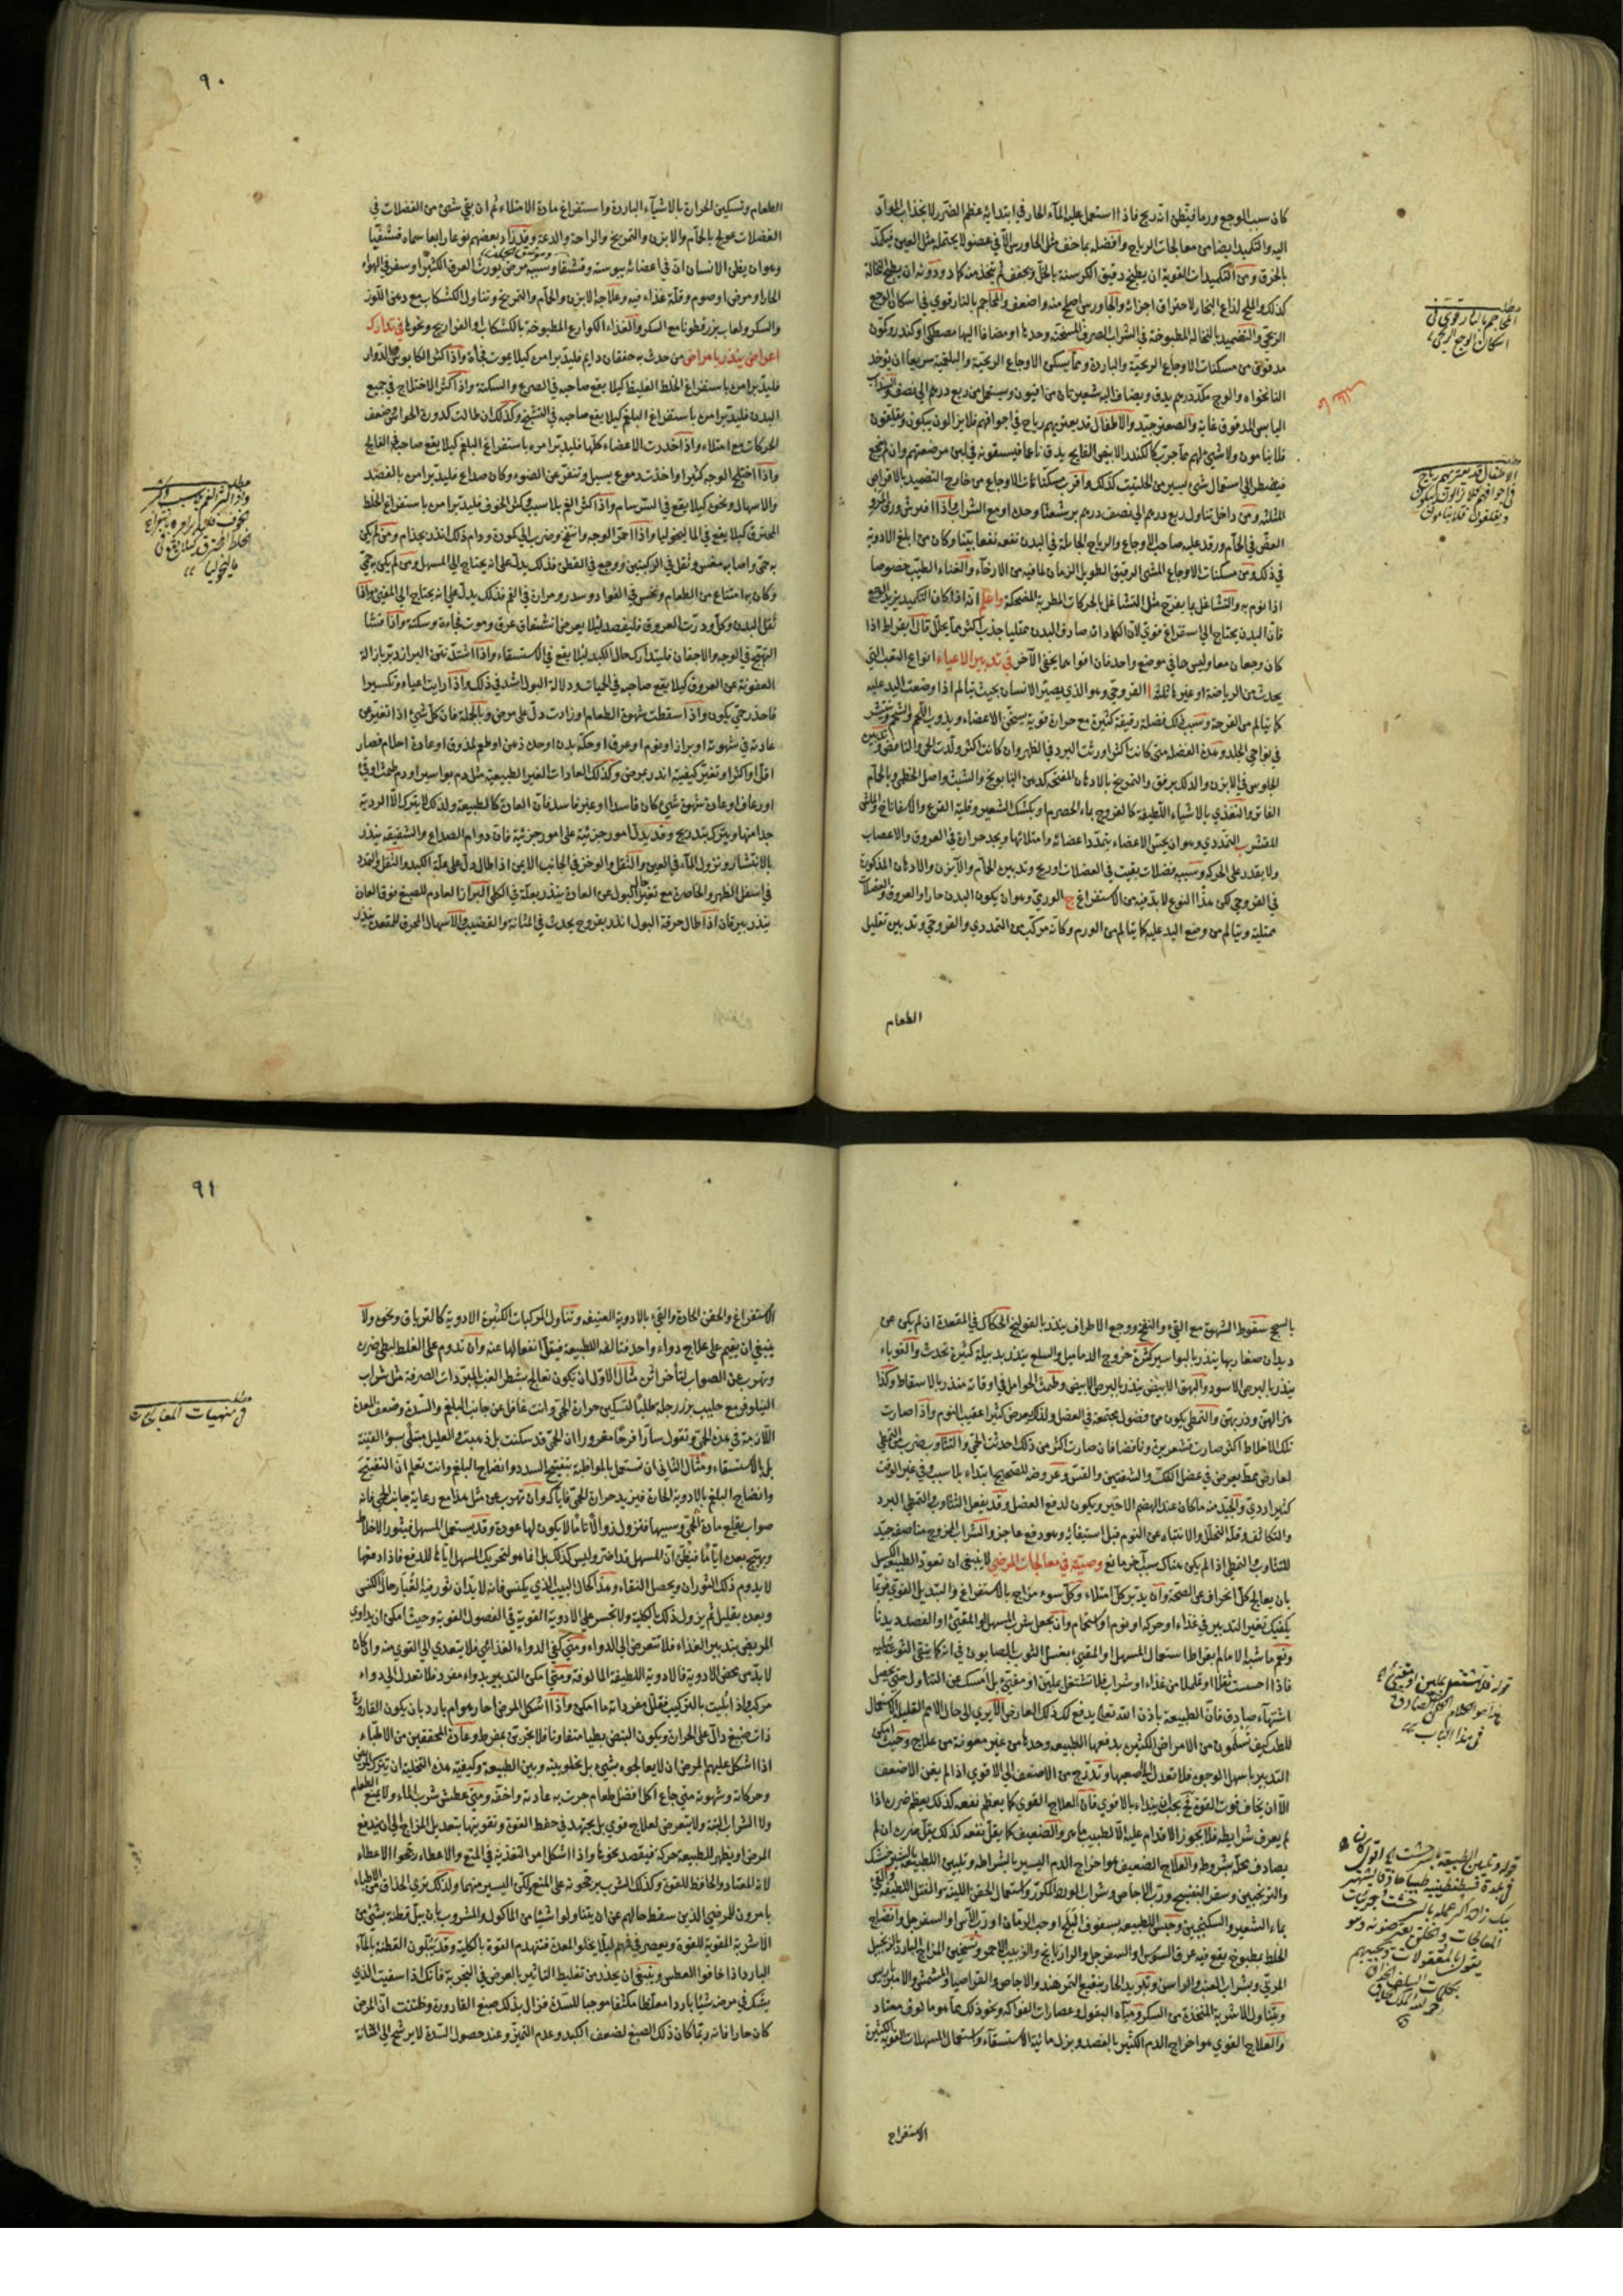 كان سبب الوجع وربما فيظن انه ريح فاذا استعمل عليه الماء الحار في ابتدائه عظم الضرر لانجذاب المواد
اليه والتكميد ايضا من معالجات الرياح وافضله بما خف مثل الجاورس الا في عضو لا يحتمله مثل العين فيكمد
بالخرق ومن التكميدات القوية ان يطبخ دقيق الكرسنة بالخل ويجفف ثم يتخذ منه كماد ودونه ان يطبخ النخالة
كذلك والملح لذاع البخار لاحتراق اجزائه والجاورس اصلح منه واضعف والمحاجم بالنار قوي في اسكان الوجع
الريحي والتضميد بالنخالة المطبوخة في الشراب الصرف المسخنة وحدها او مضافا اليها مصطكى او كندر وكمون
مدقوق من مسكنات الاوجاع الريحية والباردة ومما يسكن الاوجاع الريحية والبلغمية سريعا ان يؤخذ
النانخواه والوج مكد درهم يدق ويضاف اليه شعيرتان من افيون ويستعمل من ربع درهم الى نصف والسذاب
اليابس المدقوق غاية والصعتر جيد والاطفال قد يعتريهم رياح في اجوافهم فلا يزالون يبكون ويقلقون
فلا ينامون ولا شئ لهم مما جربت كالكندر الابيض الفايح يدق ناعما فيسقونه في لبن مرضعتهم وان لم ينجع
فيضطر الى استعمال شئ يسير من الحلتيت كذلك واقرب مسكنات الاوجاع من خارج التضميد بالاقراص
المثلثة ومن داخل تناول ربع درهم الى نصف درهم برشعثا وحده او مع الشراب واذا افترش ورق الخروع
الغض في الحمام ورقد عليه صاحب الاوجاع والرياح الجائلة في البدن نفعه نفعا بينا وكان من ابلغ الادوية
في ذلك ومن مسكنات الاوجاع المشي الرقيق الطويل الزمان لما فيه من الارخاء والغناء الطيب خصوصا
اذا نوم به والتشاغل بما يفرح مثل التشاغل بالحركات المطربة المضحكة واعلم انه اذا كان التكميد يزيد الوجع
فان البدن يحتاج الى استفراغ قوي لان الكماد انه صادف البدن ممتليا جذب اكثر مما يحلل قال ابقراط اذا
كان وجعان معا وليس هما في موضع واحد فان اقواهما يخفي الآخر في تدبير الاعياء انواع التعب التي
يحدث من الرياضة او غيرها ثلثة ا القروحي وهو الذي يصير الانسان بحيث يتالم اذا وضعت اليد عليه
كما يتالم من القرحة وسبب ذلك فضلة رقيقة كثيرة مع حرارة قوية يسخن الاعضاء ويذوب اللحم والشحم وينتشر
في نواحي الجلد وهذه الفضلة متى كانت اكثر اورثت البرد في الظهر وان كانت اكثر ولدت الحمى والنافض وتدبيره
الجلوس في الابزن والدلك برفق والتمريخ بالادهان المفتحة كدهن البابونج والشبث واصل الخطمي وبالحمام
الفاتر والتغذي بالاشياء اللطيفة كالفروج بماء الحصرم او بكشك الشعير وقلية القرع والاسفاناخ والماش
المقشر ب التمددي وهو ان يحس الاعضاء بتمدد اعضائه وامتلائها ويجد حرارة في العروق والاعصاب
ولا يقدر على الحركة وسببه فضلات بقيت في العضلات او ريح وتدبيره الحمام والآبزن والادهان المذكورة
في القروحي لكن هذا النوع لا بد فيه من الاستفراغ ج الورمي وهو ان يكون البدن حارا والعروق والعضلات
ممتلية ويتالم من وضع اليد عليه كما يتالم من الورم وكانه مركب من التمددي والقروحي وتدبيره تقليل
الطعام
مطلب
المحاجم بالنار قوي في
اسكان الوجع الريحي
مطلب
الاطفال قد يعتريهم رياح
في اجوافهم فلا يزالون يبكون
ويقلقون فلا ينامون
٩٠
الطعام وتسكين الحرارة بالاشياء الباردة واستفراغ مادة الامتلاء ثم ان بقي شئ من الفضلات في
العضلات عولج بالحمام والابزن والتمريخ والراحة والدعة وقد زاد بعضهم نوعا رابعا سماه قشفيا
وهو ان يظن الانسان ان في اعضائه يبوسة وقشفا وسببه مرض يورث العرق الكثير او سفر في الهواء
الحار او مرض او صوم وقلة غذاء فيه وعلاجه الابزن والحمام والتمريخ وتناول الكشكاب مع دهن اللوز
والسكر ولعاب بزر قطونا مع السكر والغذاء الكوارع المطبوخة بالكشكاب او الفراريج ونحوها في تدارك
اعراض ينذر بامراض من حدث به خفقان دايم فليدبر امره كيلا يموت فجأة واذا اكثر الكابوس والدوار
فليدبر امره باستفراغ الخلط الغليظ كيلا يقع صاحبه في الصرع والسكتة واذا اكثر الاختلاج في جميع
البدن فليدبر امره باستفراغ البلغم كيلا يقع صاحبه في التشنج وكذلك ان طالت كدورة الحواس وضعف
الحركات مع امتلاء واذا خدرت الاعضاء كلها فليدبر امره باستفراغ البلغم كيلا يقع صاحبه في الفالج
واذا اختلج الوجه كثيرا واخذت دموع يسيل وتنفر عن الضوء وكان صداع فليدبر امره بالفصد
والاسهال ونحوه كيلا يقع في السرسام واذا كثر الغم بلا سبب وكثر الخوف فليدبر امره باستفراغ الخلط
المحترق كيلا يقع في الماليخوليا واذا احمر الوجه وانتفخ وضرب الى كمودة ودام ذلك انذر بجذام ومن لم يكن
به حمى واصابه مغس وثقل في الركبتين ووجع في القطن فذلك يدل على انه يحتاج الى المسهل ومن لم يكن به حمى
وكان به امتناع من الطعام ونخس في الفؤاد وسدر ومرارة في الفم فذلك يدل على انه يحتاج الى المقيئ واذا
ثقل البدن وكل ودرت العروق فليفصد لئلا يعرض انشقاق عرق وموت فجاءة وسكتة واذا فشا
التهيج في الوجه والاجفان فليتدارك حال الكبد لئلا يقع في الاستسقاء واذا اشتد نتن البراز دبر بازالة
العفونة عن العروق كيلا يقع صاحبه في الحميات ودلالة البول اشد في ذلك واذا رايت اعياء وتكسيرا
فاحذر حمى يكون واذا سقطت شهوة الطعام او زادت دل على مرض وبالجملة فان كل شئ اذا تغير عن
عادته في شهوته او براز او نوم او عرق او حكة بدن او حدة ذهن او طعم مذوق او عادة احلام فصار
اقل او اكثر او تغير كيفيته انذر بمرض وكذلك العادات الغير الطبيعية مثل دم بواسير او دم طمث او قئ
او رعاف او عادة شهوة شئ كان فاسدا او غير فاسد فان العادة كالطبيعة ولذلك لا يترك الا الردية
جدا منها ويترك بتدريج وقد يدل امور جزئية على امور جزئية فان دوام الصداع والشقيقة ينذر
بالانتشار ونزول الماء في العين والثقل والوخز في الجانب الايمن اذا طال دل على علة الكبد والثقل والتمدد
في اسفل الظهر والخاصرة مع تغير حال البول عن العادة ينذر بعلة في الكلى البراز العادم للصبغ فوق العادة
ينذر بيرقان اذا طال حرقة البول انذر بقروح يحدث في المثانة والقضيب والاسهال المحرق للمقعدة ينذر
مطلب
واذا اكثر الغم بلا سبب وكثر
الخوف فليدبر امره باستفراغ
الخلط المحترق كيلا يقع في
ماليخوليا
بالسحج سقوط الشهوة مع القئ والنفخ ووجع الاطراف ينذر بالقولنج الحكاك في المقعدة ان لم يكن عن
ديدان صغار بها ينذر بالبواسير كثرة خروج الدماميل والسلع ينذر بدبيلة كثيرة تحدث والقوباء
ينذر بالبرص الاسود والبهق الابيض ينذر بالبرص الابيض وطمث الحوامل في اوقاته منذر بالاسقاط وكذا
هزالهن وذربهن والتمطي يكون من فضول مجتمعة في العضل ولذلك يعرض كثيرا عقيب النوم واذا صارت
تلك الاخلاط اكثر صارت قشعريرة ونافضا فان صارت اكثر من ذلك احدثت الحمى والتثاوب ضرب من التمطي
لعارض تمط يعرض في عضل الفك والشفتين والقس وعروضه للصحيح ابتداء بلا سبب وفي غير الوقت
كثيرا ردي والجيد منه ما كان عند الهضم الاخير ويكون لدفع العضل وقد يفعل التثاوب والتمطي البرد
والتكاثف وقلة التحلل والانتباه عن النوم قبل استيفائه وهو دفع عاجز والشراب الممزوج مناصفة جيد
للتثاوب والتمطي اذا لم يكن هناك سبب آخر مانع وصية في معالجات المرضى لا ينبغي ان تعود الطبيعة الكسل
بان يعالج كل انحراف عن الصحة وان يدبر كل امتلاء وكل سوء مزاج بالاستفراغ والتبديل القوي فربما
يكفيك تغيير التدبير في غذاء او حركة او نوم او استحمام وان يجعل شرب المسهل او المقيئ او الفصد ديدنا
ونعم ما شبه الامام ابقراط استعمال المسهل او المقيئ بغسل الثوب بالصابون في انه كما ينقي الثوب يخلقه
فاذا احسست ثقلا او تململا من غذاء او شراب فلا تشتغل بملين او مقيئ بل امسك عن التناول حتى يحصل
اشتهاء صادق فان الطبيعة باذن الله تعالى يدفع لك ذلك العارض الا يرى الى حال الامم القليل الاستعمال
للطب كيف يسلمون من الامراض الكثيرة يدفعها الطبيعة وحدها من غير معونة من علاج وحيث امكن
التدبير باسهل الوجوه فلا تعدل الى اصعبها وتدرج من الاضعف الى الاقوى اذا لم يغن الاضعف
الا ان يخاف فوت القوة فح يجب ان يبتداء بالاقوى فان العلاج القوي كما يعظم نفعه كذلك يعظم ضرره اذا
لم يعرف شرايطه فلا يجوز الاقدام عليه الا لطبيب ماهر والضعيف كما يقل نفعه كذلك يقل ضرره ان لم
يصادف محله بشروطه والعلاج الضعيف هو اخراج الدم اليسير بالشراطة وتليين الطبيعة بالشيرخشت
والترنجبين وسفوف البنفسج ورب الاجاص وشراب الورد المكرر واستعمال الحقن اللينة والفتل اللطيفة والقئ
بماء الشعير والسكنجبين وحبس الطبيعة بسفوف البلح او حب الرمان او رب الآس او السفرجل وانضاج
الخلط بمطبوخ يقع فيه عرق السوس او السفرجل والرازيانج والزبيب الاحمر وتسخين المزاج البارد بالزنجبيل
المربى وبشراب العنبر والراسن وتبريد الحار بنقيع التمر هند والاجاص والقراصيا والمشمش والامبرباريس
وبتناول الاشربة المتخذة من السكر ومياه البقول وعصارات الفواكه ونحو ذلك مما هو مالوف معتاد
والعلاج القوي هو اخراج الدم الكثير بالفصد وبزل مائية الاستسقاء واستعمال المسهلات القوية الكثيرة
الاستفراغ
قوله فلا تشتغل بملين او مقيئ
هذا هو الكلام الصادق
في هذا الباب
٩١
الاستفراغ والحقن الحادة والقئ بالادوية العنيفة وتناول المركبات الكثيرة الادوية كالترياق ونحوه ولا
ينبغي ان يقيم على علاج دواء واحد فتالفه الطبيعة فيقل انفعالها عنه وان تدوم على الغلط لبطئ ضرره
وتهرب عن الصواب لتأخر اثره مثال الاول ان يكون تعالج شطر الغب بالمبردات الصرفة مثل شراب
النيلوفر مع حليب بزر رجلة طلبا لتسكين حرارة الحمى وانت غافل عن جانب البلغم والسدة وضعف المعدة
اللازمة في هذه الحمى وتقول سارا فرحا مغرورا ان الحمى قد سكنت بل ذهبت والعليل مبتلى بسوء القنية
بل بالاستسقاء ومثال الثاني ان تستعمل بالمواظبة تفتيح السدد وانضاج البلغم وانت تعلم ان التفتيح
وانضاج البلغم بالادوية الحارة فيزيد حرارة الحمى فاياك وان تهرب عن مثل هذا مع رعاية جانب الحمى فانه
صواب يقلع مادة الحمى وسببها فتزول زوالا تاما لا يكون لها عودة وقد يستعمل المسهل فيثور الاخلاط
ويهيج بعده اياما فيظن ان المسهل قد اضر وليس كذلك بل انما هو لتحريك المسهل اياها للدفع فاذا دفعها
لا يدوم ذلك الثوران ويحصل النقاء وهذا كحال البيت الذي يكنس فانه لا بد ان ثور فيه الغبار حال الكنس
وبعده بقليل ثم يزول ذلك بالكلية ولا تجسر على الادوية القوية في الفصول القوية وحيث امكن ان يداوي
المريض بتدبير الغذاء فلا تتعرض الى الدواء ومتى كفى الدواء الغذائي فلا يتعدى الى القوي منه وان كان
لا بد من محض الادوية فالادوية اللطيفة المالوفة ومتى امكن التدبير بدواء مفرد فلا تعدل الى دواء
مركب واذ ابليت بالتركيب فقلل مفرداته ما امكن واذا اشكل المرض احار هو ام بارد بان يكون القارورة
ذات صبغ دال على الحرارة ويكون النبض بطيا متفاوتا فلا يجربن بمفرط وعادة المحققين من الاطباء
اذا اشكل عليهم المرض ان لا يعالجوه بشئ بل يخلو بينه وبين الطبيعة وكيفية هذه التخلية ان يترك المريض
وحركاته وشهوته متى جاع اكل افضل طعام جرت به عادته واخفه ومتى عطش شرب الماء ولا يمنع الطعام
ولا الشراب البتة ولا يتعرض لعلاج قوي بل يجتهد في حفظ القوة وتقويتها بتعديل المزاج الى ان يندفع
المرض او يظهر للطبيعة حركة فيقصد نحوها واذا اشكل امر التغذية في المنع والاعطاء رجحوا الاعطاء
لانه المعتاد والحافظ للقوة وكذلك المشرب يرجحونه على المنع ولكن اليسير منهما ولذلك ترى الحذاق من الاطباء
يامرون للمرضى الذين سقط حالهم عن ان يتناولوا شيئا من الماكول والمشروب بان يبل قطنة بشئ من
الاشربة المقوية للقوة ويعصر في فمهم لئلا يخلو المعدة فتنهدم القوة بالكلية وقد يبلون القطنة بالماء
البارد اذا خافوا العطس وينبغي ان يحذر من تغليط التاثير بالعرض في التجربة فانك اذا سقيت الذي
يشك في مرضه شيئا باردا مغلظا مكثفا موجبا للسدة فزال بذلك صبغ القارورة وظننت ان المرض
كان حارا فانه ربما كان ذلك الصبغ لضعف الكبد وعدم التميز وعند حصول السدة لا يرشح الى المثانة
مطلب
في منهيات المعالجات